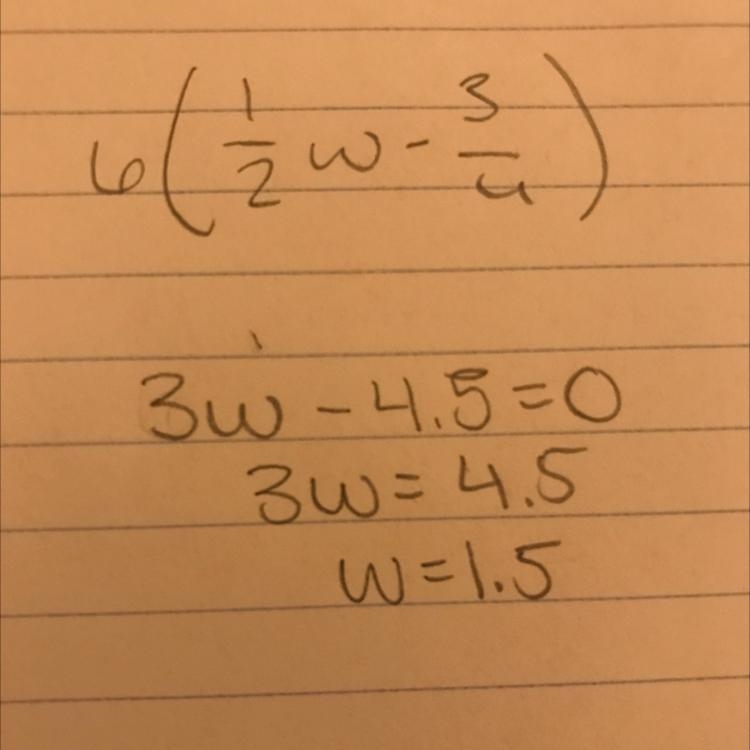 6(1/2 w - 3/4)
3w - 4.5 = 0
3w = 4.5
w = 1.5